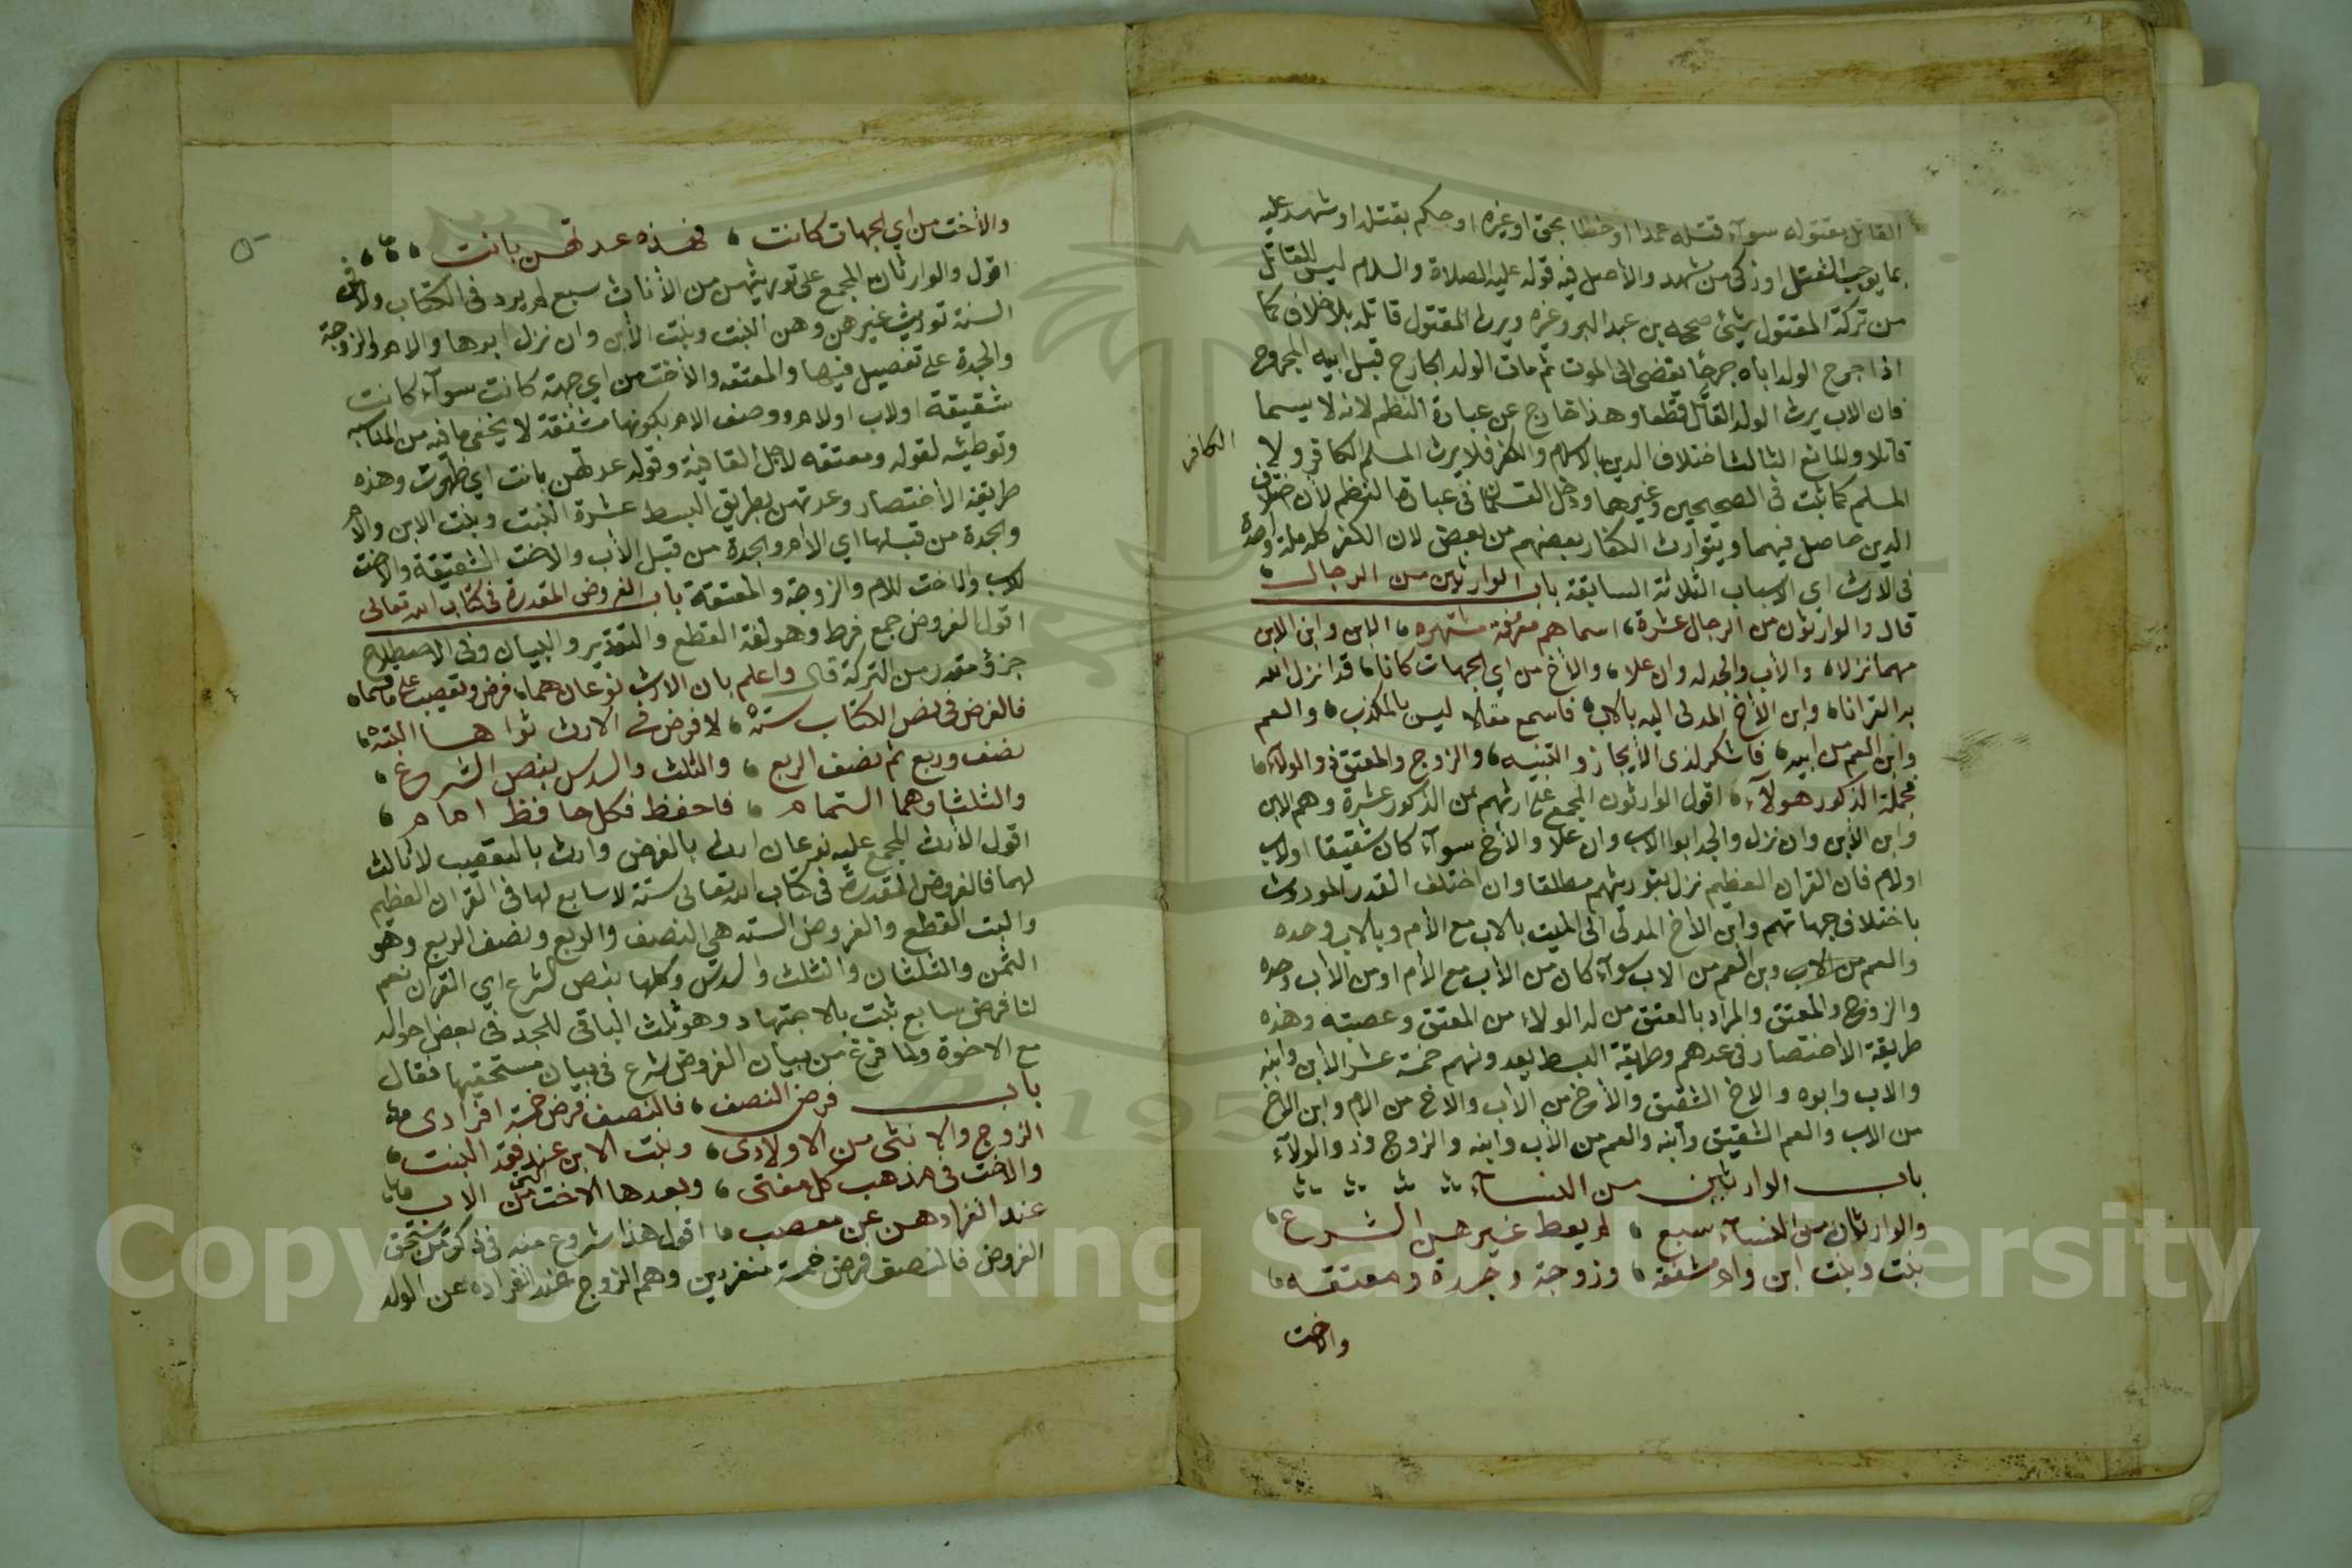 القاتل مقتوله سوآء قتله عمدا او خطا بحق او غيره او حكم بقتله او شهد عليه
بما يوجب القتل او زكى من شهد والأصل فيه قوله عليه الصلاة والسلام ليس للقاتل
من تركة المقتول شيئ صححه بن عبد البر وغيره ويرث المقتول قاتله بلا خلاف كما
اذا جرح الولد اباه جرحًا يقضى الى الموت ثم مات الولد الجارح قبل ابيه المجروح
فان الاب يرث الولد القاتل قطعا وهذا خارج عن عبارة النظم لانه لا يسما
قاتلا والمانع الثالث اختلاف الدين بالاسلام والكفر فلا يرث المسلم الكافر ولا
الكافر
المسلم كما ثبت فى الصحيحين وغيرهما ودخل القسمان فى عبارة النظم لأن اختلاف
الدين حاصل فيهما ويتوارث الكفار بعضهم من بعض لان الكفر كله ملة واحدة
فى الارث اى الاسباب الثلاثة السابقة باب الوارثين من الرجال
قال والوارثون من الرجال عشرة، اسماهم معرفة مشتهره، الابن وابن الابن
مهما نزلا، والأب والجد له وان علا، والأخ من اي الجهات كانا، قد انزل الله
به القرانا، وابن الأخ المدلى اليه بالاب، فاسمع مقالا ليس بالمكذب، والعم
وابن العم من ابيه، فاشكر لذى الأيجاز والتنبيه، والزوج والمعتق ذو الولاء،
فجملة الذكور هولآء، اقول الوارثون المجمع على ارثهم من الذكور عشرة وهم الابن
وابن الأبن وان نزل والجد ابوا الاب وان علا والأخ سوآء كان شقيقا اولاب
اولام فان القران العظيم نزل بتوريثهم مطلقا وان اختلف القدر الموروث
باختلاف جهاتهم وابن الأخ المدلى الى الميت بالاب مع الأم وبالاب وحده
والعم من الاب وبن العم من الاب سوآء كان من الأب مع الأم اومن الأب وحده
والزوج والمعتق والمراد بالمعتق من له الولاء من المعتق وعصبته وهذه
طريقة الأختصار فى عدهم وطريقة البسط يعدونهم خمسة عشر الأبن وابنه
والاب وابوه والاخ الشقيق والأخ من الأب والاخ من الام وابن الاخ
من الاب والعم الشقيق وأبنه والعم من الأب وابنه والزوج وذو الولآء
باب الوارثين من النسآء
والوارثان من النسآء سبع، لم يعط غيرهن الشرع،
بنت وبنت ابن وام مشفقه، وزوجة وجدة ومعتقه،
والاخت
والأخت من اي الجهات كانت، فهذه عدتهن بانت،
اقول والوارثان المجمع على توريثهن من الأناث سبع لم يرد فى الكتاب ولا فى
السنة توريث غيرهن وهن البنت وبنت الأبن وان نزل ابوها والام والزوجة
والجدة على تفصيل فيها والمعتقه والأخت من اي جهة كانت سوآء كانت
شقيقة اولاب اولام ووصف الام بكونها مشفقة لا يخفى ما فيه من المناسبه
وتوطئه لقوله ومعتقه لاجل القافية وقوله عدتهن بانت اي ظهرت وهذه
طريقة الأختصار وعدتهن بطريق البسط عشرة البنت وبنت الابن والأم
والجدة من قبلها اي الأم والجدة من قبل الأب والاخت الشقيقة والاخت
للاب والاخت للام والزوجة والمعتقة باب الفروض المقدرة فى كتاب الله تعالى
اقول الفروض جمع فرض وهو لغة القطع والتقدير والبيان وفى الاصطلاح
جزؤ مقدر من التركة قال واعلم بان الارث نوعان هما، فرض وتعصيب على ما قسما،
فالفرض فى نص الكتاب سته، لا فرض فى الارث سواها البته،
نصف وربع ثم نصف الربع، والثلث والسدس بنص الشرع،
والثلثا وهما التمام، فاحفظ فكل حافظ امام،
اقول الأرث المجمع عليه نوعان ارث بالفرض وارث بالتعصيب لا ثالث
لهما فالفروض المقدرة فى كتاب الله تعالى ستة لا سابع لها فى القران العظيم
والبت القطع والفروض السته هي النصف والربع ونصف الربع وهو
الثمن والثلثان والثلث والسدس وكلها بنص الشرع اي القران نعم
لنا فرض سابع ثبت بالاجتهاد وهو ثلث الباقى للجد فى بعض احواله
مع الاخوة ولما فرغ من بيان الفروض شرع فى بيان مستحقيها فقال
باب فرض النصف، فالنصف فرض خمسة افرادى،
الزوج والانثى من الاولادى، وبنت الابن عند فقد البنت،
والاخت فى مذهب كل مفتى، وبعدها الاخت التى من الاب،
عند انفرادهن عن معصب، اقول هذا شروع منه فى ذكر من يستحق
الفروض فالنصف فرض خمسة منفردين وهم الزوج عند انفراده عن الولد